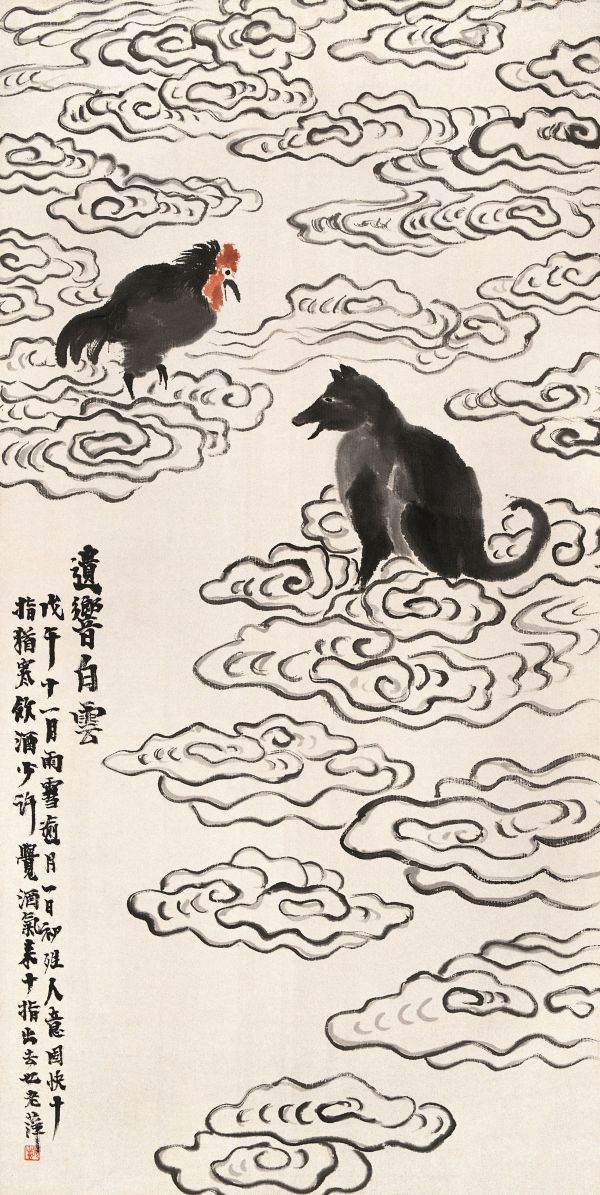 遺響白雲
戊午十一月雨雪逾月一日初晴人意固快十
指猶寒飲酒少許覺酒氣柔十指出去也老萍